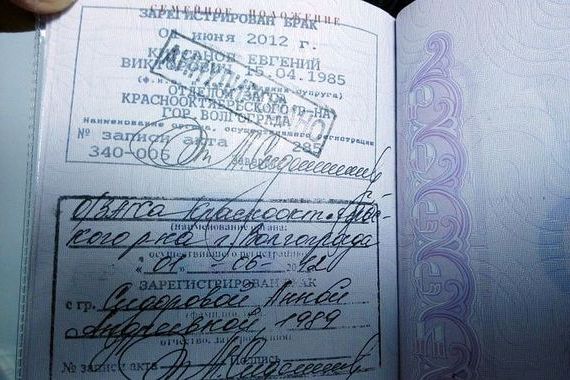 СЕМЕЙНОЕ ПОЛОЖЕНИЕ
ЗАРЕГИСТРИРОВАН БРАК
июня 2012 г.
ЕВГЕНИЙ
15.04.1985
ОТДЕЛОМ
КРАСНООКТЯБРЬСКОГО Р-НА
ГОР. ВОЛГОГРАДА
Наименование органа, осуществившего регистрацию
№ записи акта 285
340-006
О/ЗАГСа Красноокт.
кого р-на г. Волгограда
(наименование органа,
осуществившего регистрацию)
"01" 06
ЗАРЕГИСТРИРОВАН БРАК
с гр. Сидоровой Анной
Андреевной, 1989
№ записи акта Подпись